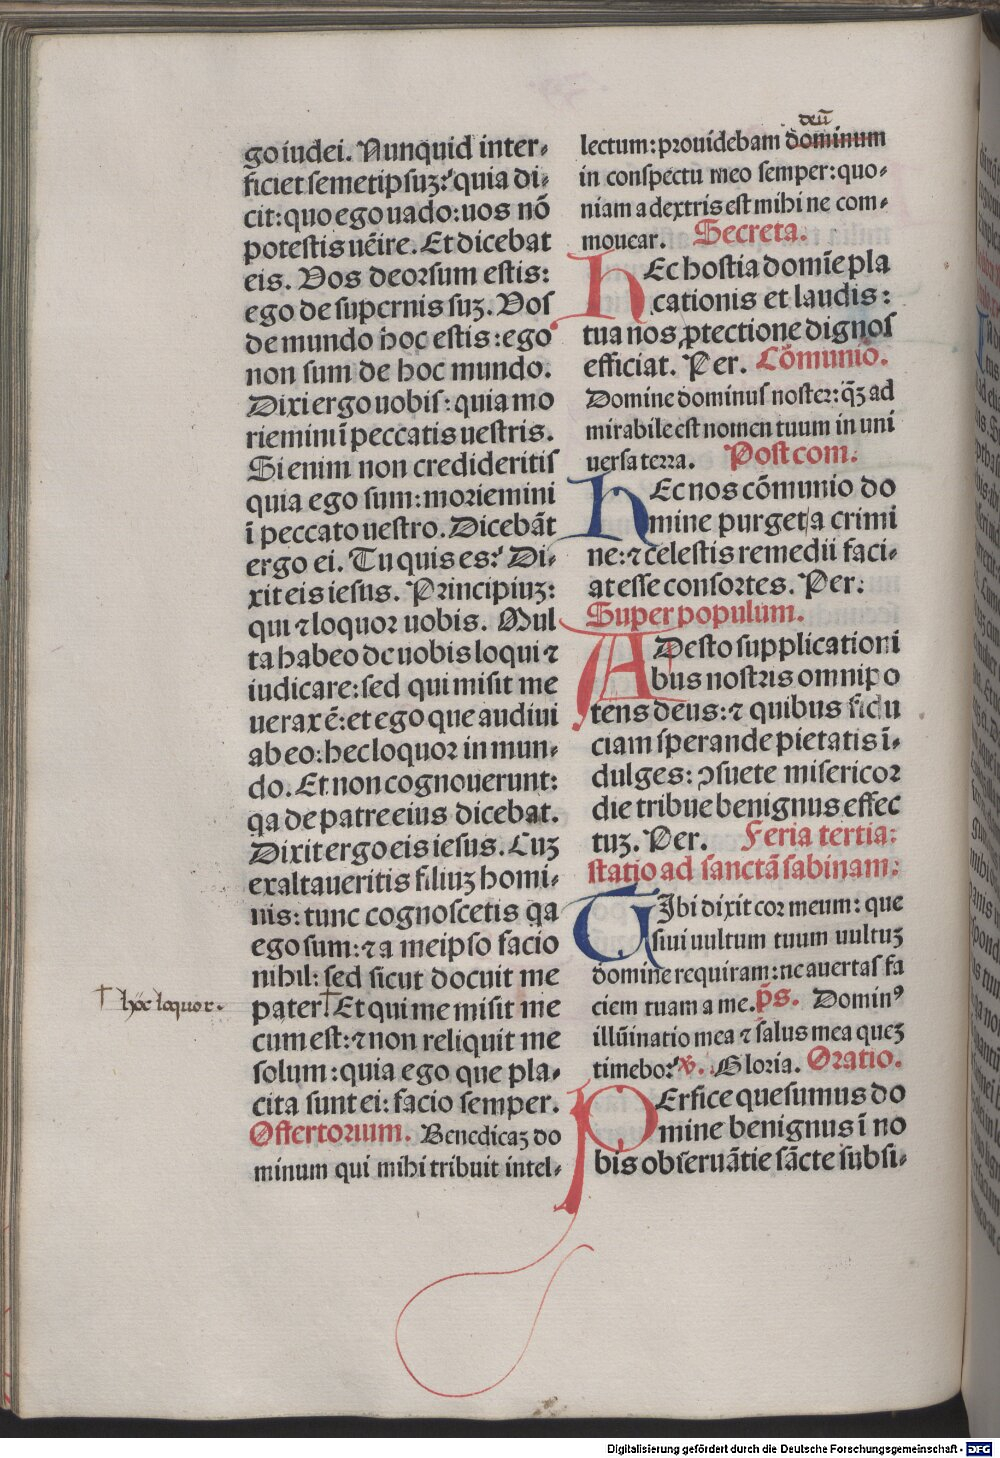 go iudei. Nunquid inter-
ficiet semetipsuʒ: quia di-
cit: quo ego uado: uos nō
potestis uēire. Et dicebat
eis. Vos deorsum estis:
ego de supernis suʒ. Vos
de mundo hoc estis: ego
non sum de hoc mundo.
Dixi ergo uobis: quia mo
riemini ī peccatis uestris.
Si enim non credideritis
quia ego sum: moriemini
ī peccato uestro. Dicebāt
ergo ei. Tu quis es? Di-
xit eis iesus. Principiuʒ:
qui ⁊ loquor uobis. Mul
ta habeo de uobis loqui ⁊
iudicare: sed qui misit me
uerax ē: et ego que audiui
ab eo: hec loquor in mun-
do. Et non cognouerunt:
qa de patre eius dicebat.
Dixit ergo eis iesus. Cuʒ
exaltaueritis filiuʒ homi-
nis: tunc cognoscetis qa
ego sum: ⁊ a meipso facio
nihil: sed sicut docuit me
pater† Et qui me misit me
† hęc loquor.
cum est: ⁊ non reliquit me
solum: quia ego que pla-
cita sunt ei: facio semper.
Offertorium. Benedicaʒ do
minum qui mihi tribuit intel-
deū
lectum: prouidebam dominum
in conspectu meo semper: quo-
niam a dextris est mihi ne com-
mouear. Secreta.
HEc hostia domīe pla
cationis et laudis:
tua nos ꝓtectione dignos
efficiat. Per. Cōmunio.
Domine dominus noster: qʒ̄ ad
mirabile est nomen tuum in uni
uersa terra. Postcom.
HEc nos cōmunio do
mine purget a crimi
ne: ⁊ celestis remedii faci-
at esse consortes. Per.
Super populum.
ADesto supplicationi
bus nostris omnipo
tens deus: ⁊ quibus fidu
ciam sperande pietatis ī-
dulges: ɔsuete misericor
die tribue benignus effec
tuʒ. Per. Feria tertia:
statio ad sanctā sabinam:
TIbi dixit cor meum: que
siui uultum tuum uultuʒ
domine requiram: ne auertas fa
ciem tuam a me. p̄s. Dominꝰ
illūinatio mea ⁊ salus mea queʒ
timebo? ꝟ. Gloria. Oratio.
PErfice quesumus do
mine benignus ī no
bis obseruātie sācte subsi-
Digitalisierung gefördert durch die Deutsche Forschungsgemeinschaft - DFG